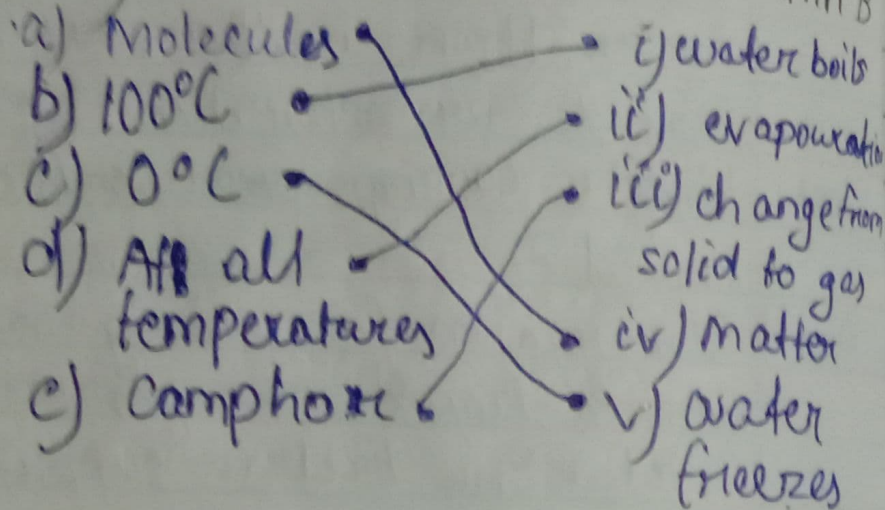 a) Molecules
b) 100°C
c) 0°C
d) At all
temperatures
e) Camphor
i) water boils
ii) evapouratio
iii) change from
solid to gas
iv) matter
v) water
freezes